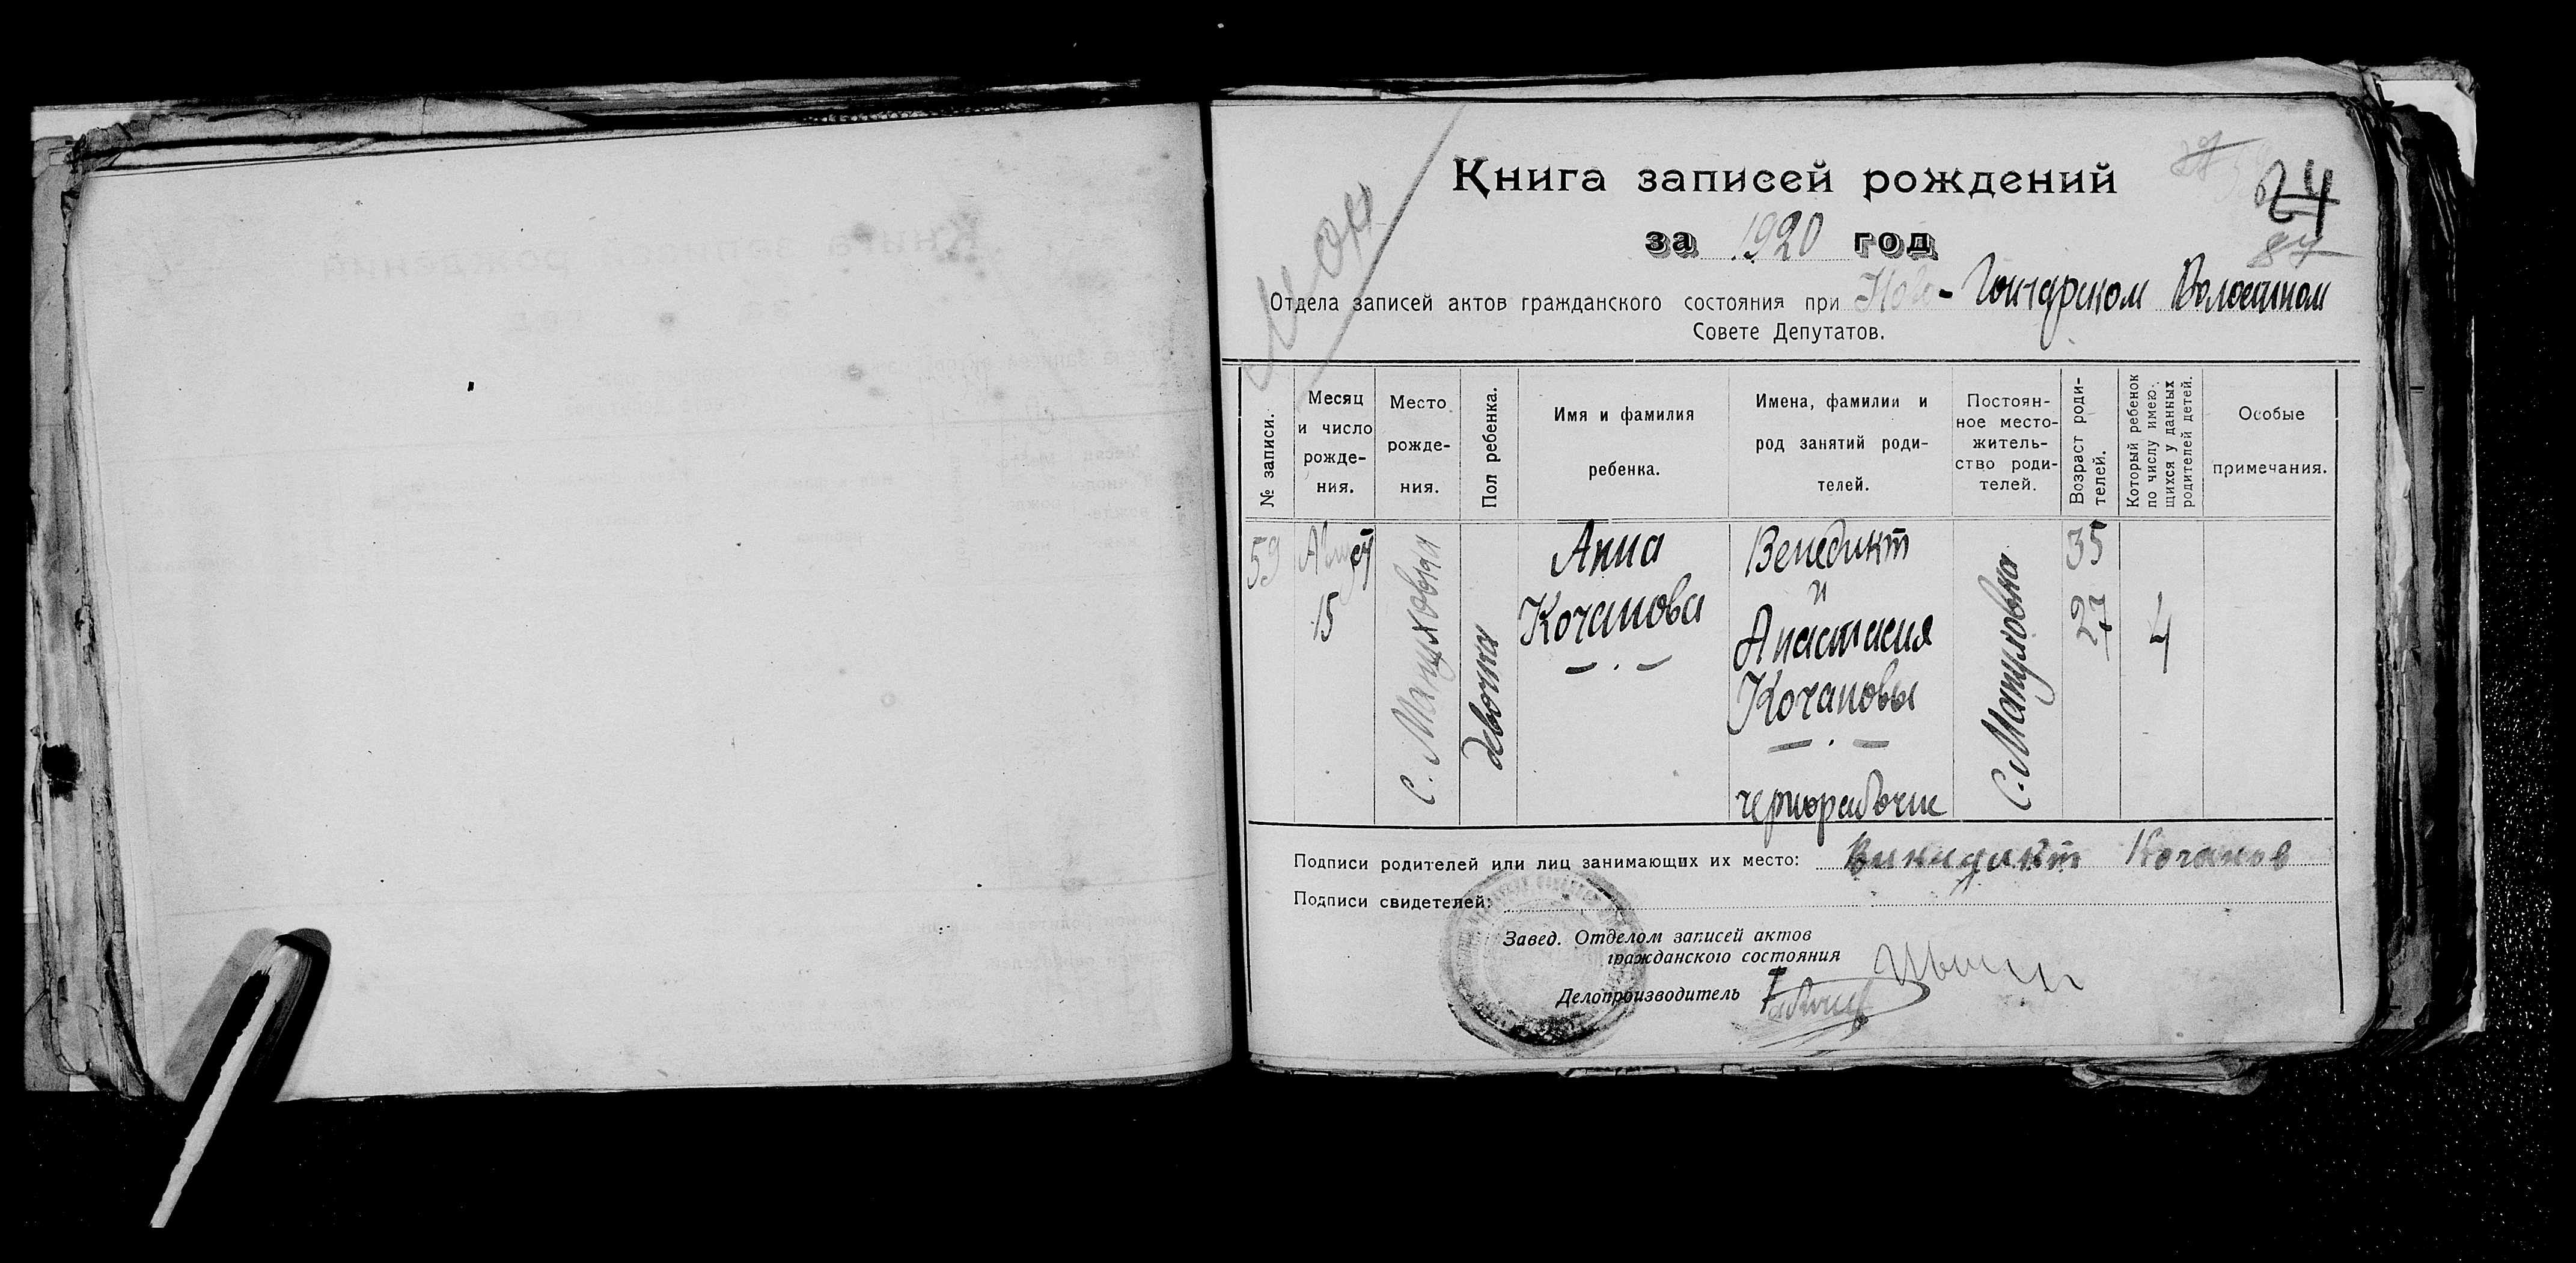 24
87
Книга записей рождений
за 1920 год
Отдела записей актов гражданского состояния при Ново-Гончарском Волостном
Совете Депутатов.
№ записи.
Месяц
и число
рожде-
ния.
Место
рожде-
ния.
Пол ребенка.
Имя и фамилия
ребенка.
Имена, фамилии и
род занятий роди-
телей.
Постоян-
ное место-
житель-
ство роди-
телей.
Возраст роди-
телей.
Который ребенок
по числу имею-
щихся у данных
родителей детей.
Особые
примечания.
59
Август
15
с.
девочка
Анна
Кочанова
Венедикт
и
Анастасия
Кочановы
чернорабочие
с.
35
27
4
Подписи родителей или лиц занимающих их место: Виникдикт Кочанов
Подписи свидетелей:
Завед. Отделом записей актов
гражданского состояния
Делопроизводитель